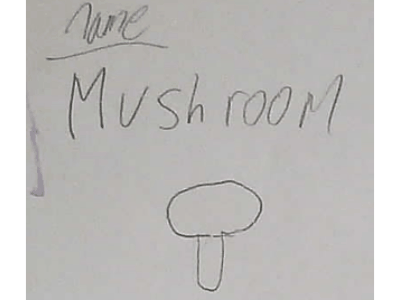 name
Mushroom